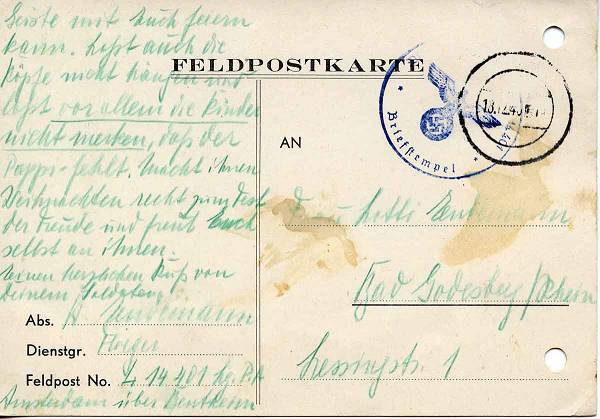 Geiste mit Euch feiern
kann. Laßt auch die
Köpfe nicht hängen und
laßt vor allem die Kinder
nicht merken, daß der
Pappi fehlt. Macht ihnen
Weihnachten recht zum Fest
der Freude und freut Euch
selbst an ihnen.
Einen herzlichen Kuß von
Deinem Soldaten
FELDPOSTKARTE
Briefstempel
13.12.40
AN
Frau Lotti Lindemann
Bad Godesberg/Rhein
Lessingstr. 1
Abs. Lindemann
Dienstgr. Flieger
Feldpost No. L 14 401 Lg. P.A
Amsterdam über Bentheim